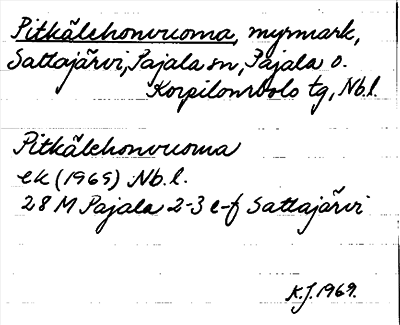 Pitkälehonvuoma, myrmark,
Sattajärvi, Pajala sn, Pajala o.
Korpilombolo tg, Nb.l.
Pitkälehonvuoma
ek (1969) Nb.l.
28 M Pajala 2-3 e-f Sattajärvi
K.J. 1969.